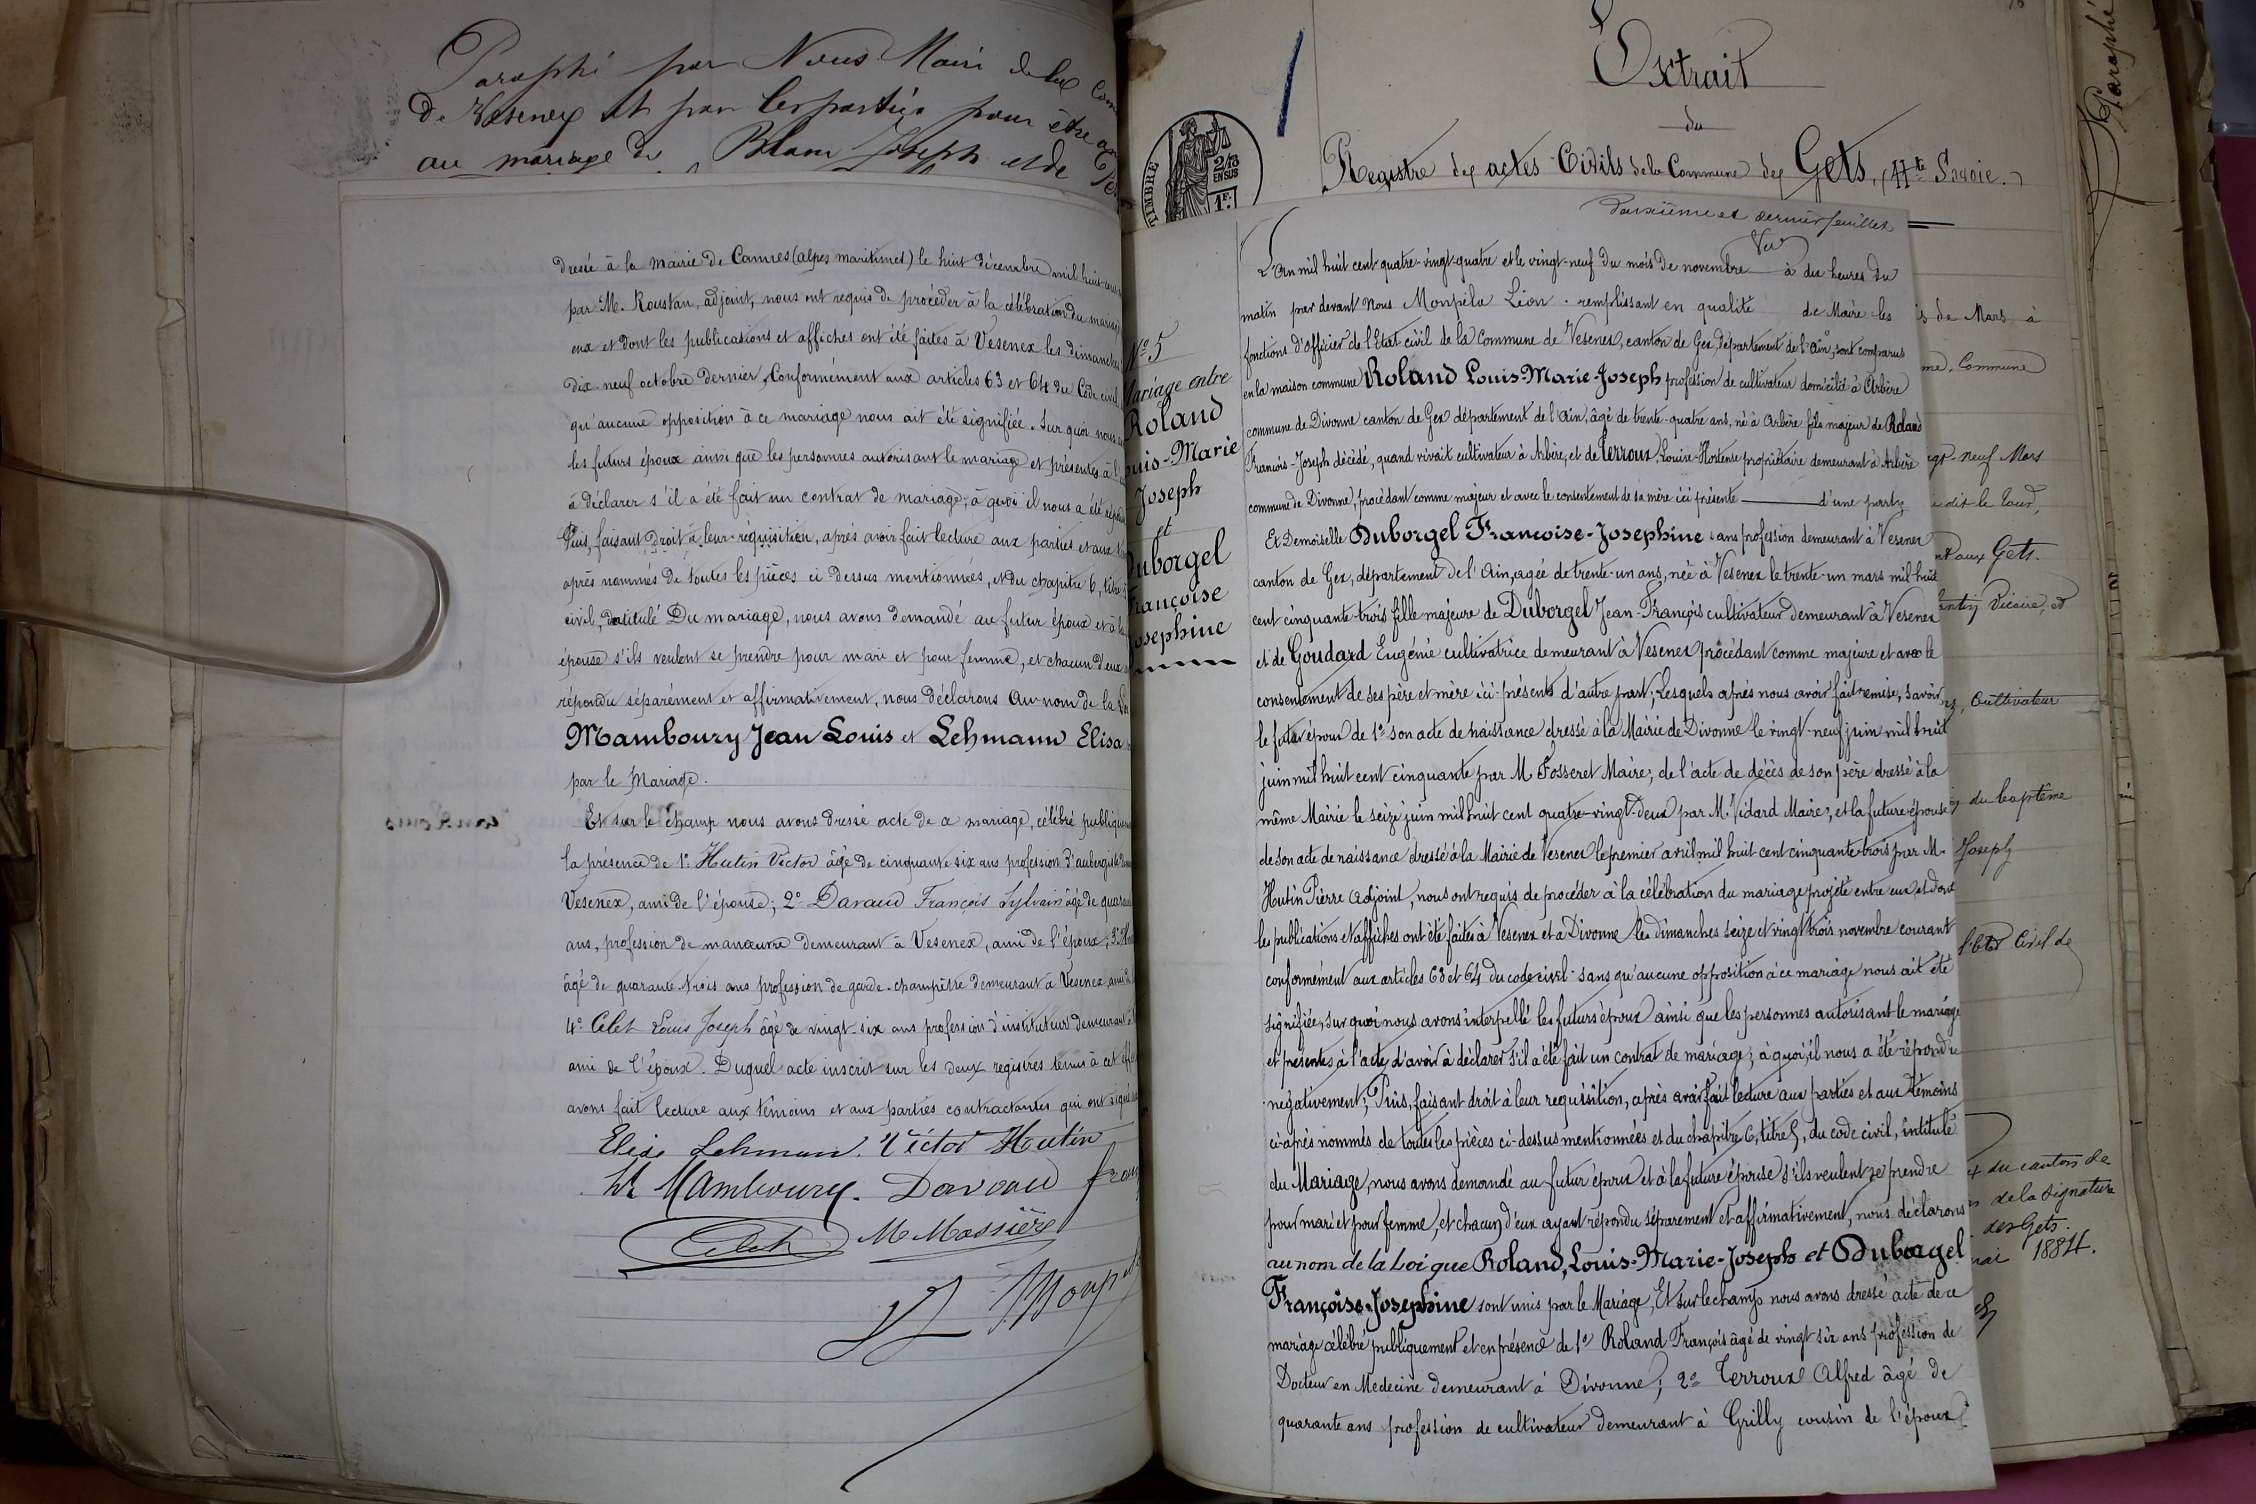 Paraphé par Nous Maire de la Com
de Vesenex et par les parties pour être an
au mariage de Blanc Joseph et de
dressé à la mairie de Cannes (alpes maritimes) le huit décembre mil huit cent
par M. Roustan, adjoint, nous ont requis de procéder à la célébration du mariage
eux et dont les publications et affiches ont été faites à Vesenex les dimanches
dix-neuf octobre dernier, Conformément aux articles 63 et 64 du Code civil
qu'aucune opposition à ce mariage nous ait été signifiée. Sur quoi nous
les futurs époux ainsi que les personnes autorisant le mariage et présentes à l'
à déclarer s'il a été fait un contrat de mariage; à quoi il nous a été répondu
Puis, faisant droit à leur réquisition, après avoir fait lecture aux parties et aux
après nommés de toutes les pièces ci dessus mentionnées, et du chapitre 6, titre
civil, intitulé Du mariage, nous avons demandé au futur époux et à la
épouse s'ils veulent se prendre pour mari et pour femme, et chacun d'eux
répondu séparément et affirmativement, nous déclarons au nom de la Loi
Mamboury Jean Louis et Lehmann Elisa
par le Mariage.
Et sur le champ nous avons dressé acte de ce mariage, célébré publiquem
la présence de 1° Hutin Victor âgé de cinquante six ans profession d'aubergiste
Vesenex, ami de l'épouse; 2° Davaud François Sylvain âgé de quarante
ans, profession de manœuvre demeurant à Vesenex, ami de l'époux; 3°
âgé de quarante-trois ans profession de garde-champêtre demeurant à Vesenex, ami
4° Celet Louis Joseph âgé de vingt-six ans profession d'instituteur demeurant à
ami de l'époux. Duquel acte inscrit sur les deux registres tenus à cet effet
avons fait lecture aux témoins et aux parties contractantes qui ont signé
Elisa Lehmann. Victor Hutin
Mamboury. Davaud fran
Celet M Massière
Monp
Extrait
du
Registre des actes Civils de la Commune des Gets, (Hte Savoie.)
TIMBRE
2/10
EN SUS
1F.
deuxième et dernier feuillet
Vu
L'an mil huit cent quatre-vingt-quatre et le vingt-neuf du mois de novembre à dix heures du
matin par devant Nous Monpela Léon remplissant en qualité de Maire les
fonctions d'Officier de l'Etat civil de la Commune de Vesenex, canton de Gex, département de l'Ain, sont comparus
en la maison commune Roland Louis-Marie-Joseph profession de cultivateur domicilié à Arbère
commune de Divonne canton de Gex département de l'Ain, âgé de trente-quatre ans, né à Arbère fils majeur de Roland
François-Joseph décédé, quand vivait cultivateur à Arbère, et de Terroux Louise-Hortense propriétaire demeurant à Arbère
commune de Divonne, procédant comme majeur et avec le consentement de sa mère ici présente d'une part,
Et Demoiselle Duborgel Françoise-Josephine sans profession demeurant à Vesenex
canton de Gex, département de l'Ain, agée de trente-un ans, née à Vesenex le trente-un mars mil huit
cent cinquante-trois fille majeure de Duborgel Jean-François cultivateur demeurant à Vesenex
et de Goudard Eugénie cultivatrice demeurant à Vesenex procédant comme majeure et avec le
consentement de ses père et mère ici-présents d'autre part; Lesquels après nous avoir fait remise, savoir,
le futur époux de 1° son acte de naissance dressé à la Mairie de Divonne le vingt-neuf juin mil huit
juin mil huit cent cinquante par M. Fosseret Maire; de l'acte de décès de son père dressé à la
même Mairie le seize juin mil huit cent quatre-vingt-deux par M. Vidard Maire, et la future épouse
de son acte de naissance dressé à la Mairie de Vesenex le premier avril mil huit cent cinquante-trois par M.
Hutin Pierre adjoint, nous ont requis de procéder à la célébration du mariage projeté entre eux et dont
les publications et affiches ont été faites à Vesenex et à Divonne les dimanches seize et vingt-trois novembre courant
conformément aux articles 63 et 64 du code civil sans qu'aucune opposition à ce mariage nous ait été
signifiée, sur quoi nous avons interpellé les futurs époux ainsi que les personnes autorisant le mariage
et présentes à l'acte d'avoir à déclarer s'il a été fait un contrat de mariage; à quoi, il nous a été répondu
négativement; Puis, faisant droit à leur requisition, après avoir fait lecture aux parties et aux témoins
ci-après nommés de toutes les pièces ci-dessus mentionnées et du chapitre 6, titre 5, du code civil, intitulé
du Mariage, nous avons demandé au futur époux et à la future épouse s'ils veulent se prendre
pour mari et pour femme, et chacun d'eux ayant répondu séparément et affirmativement, nous déclarons
au nom de la Loi que Roland, Louis-Marie-Joseph et Duborgel
Françoise-Josephine sont unis par le Mariage, Et sur le champ nous avons dressé acte de ce
mariage célébré publiquement et en présence de 1° Roland François âgé de vingt six ans profession de
Docteur en Medecine demeurant à Divonne; 2° Terroux Alfred âgé de
quarante ans profession de cultivateur demeurant à Grilly cousin de l'époux;
N° 5
Mariage entre
Roland
Louis-Marie
Joseph
et
Duborgel
Françoise
Josephine
s de Mars à
me, Commune
gt-neuf Mars
u dit le Tour,
nt aux Gets.
Vicaire, et
Cultivateur
du baptême
Joseph
l'Etat Civil de
du canton de
de la signature
des Gets.
mai 1884.
Paraphé